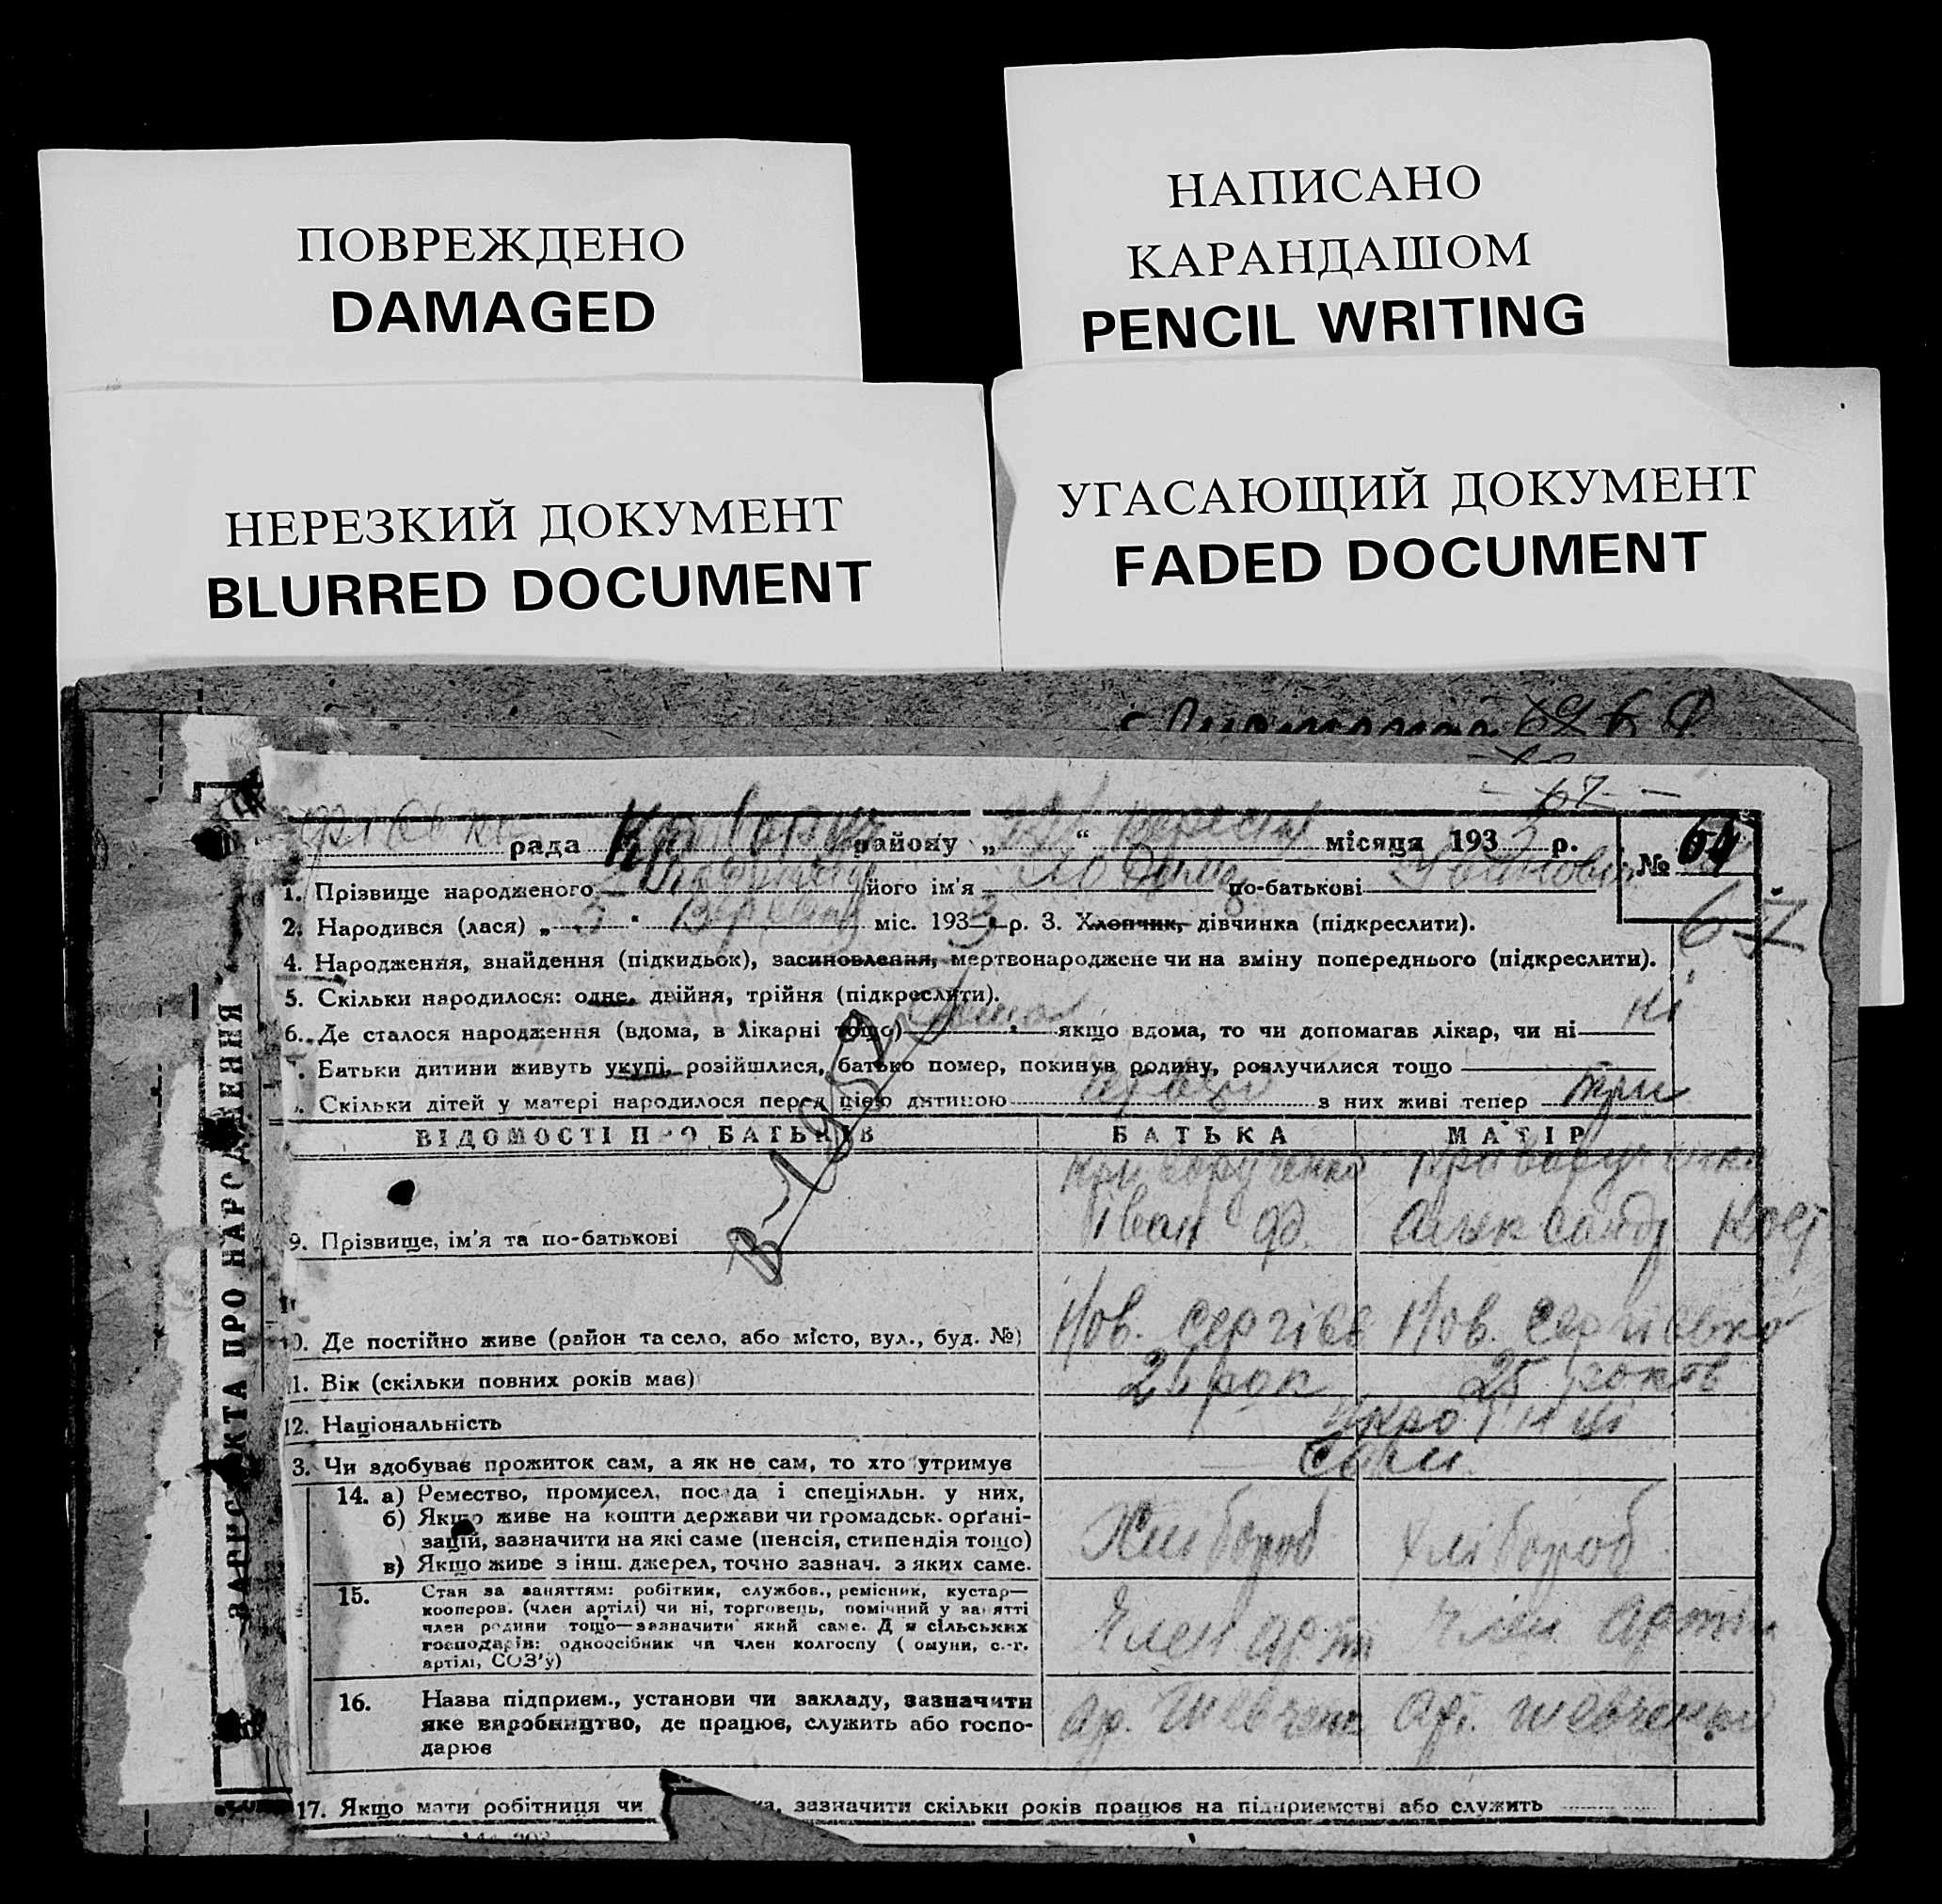 НАПИСАНО
КАРАНДАШОМ
PENCIL WRITING
ПОВРЕЖДЕНО
DAMAGED
НЕРЕЗКИЙ ДОКУМЕНТ
BLURRED DOCUMENT
УГАСАЮЩИЙ ДОКУМЕНТ
FADED DOCUMENT
67
рада району „ “ вересня місяця 1933 р. № 64
67
1. Прізвище народженого його ім'я по-батькові
2. Народився (лася) „ 5 " Вересня міс. 1933 р. 3. Хлопчик, дівчинка (підкреслити).
4. Народження, знайдення (підкидьок), засиновлення, мертвонароджене чи на зміну попереднього (підкреслити).
5. Скільки народилося: одне, двійня, трійня (підкреслити).
6. Де сталося народження (вдома, в лікарні тощо) якщо вдома, то чи допомагав лікар, чи ні ні
Батьки дитини живуть укупі, розійшлися, батько помер, покинув родину, розлучилися тощо
Скільки дітей у матері народилося перед цією дитиною з них живі тепер три
ВІДОМОСТІ ПРО БАТЬКІВ БАТЬКА МАТІР
Криворученко Криворученко
9. Прізвище, ім'я та по-батькові Іван Фд. Александ Кост
10. Де постійно живе (район та село, або місто, вул., буд. №) Нов. Сергієв Нов. Сергієвко
11. Вік (скільки повних років має) 26 рок 25 років
12. Національність українці
13. Чи здобуває прожиток сам, а як не сам, то хто утримує сами
14. а) Ремество, промисел, посада і спеціяльн. у них,
б) Якщо живе на кошти держави чи громадськ. орґані-
зацій, зазначити на які саме (пенсія, стипендія тощо) Хлібороб хлібороб
в) Якщо живе з інш. джерел, точно зазнач. з яких саме.
15. Стан за заняттям: робітник, службов., ремісник, кустар—
кооперов. (член артілі) чи ні, торговець, помічний у занятті
член родини тощо—зазначити який саме. Для сільських
господарів: одноосібник чи член колгоспу (комуни, с.-г.
артілі, СОЗ'у) Член арт член артіл
16. Назва підприєм., установи чи закладу, зазначити
яке виробництво, де працює, служить або госпо- ар. Шевченк арт. Шевченко
дарює
17. Якщо мати робітниця чи зазначити скільки років працює на підприємстві або служить
ЗАПИС АКТА ПРО НАРОДЖЕННЯ